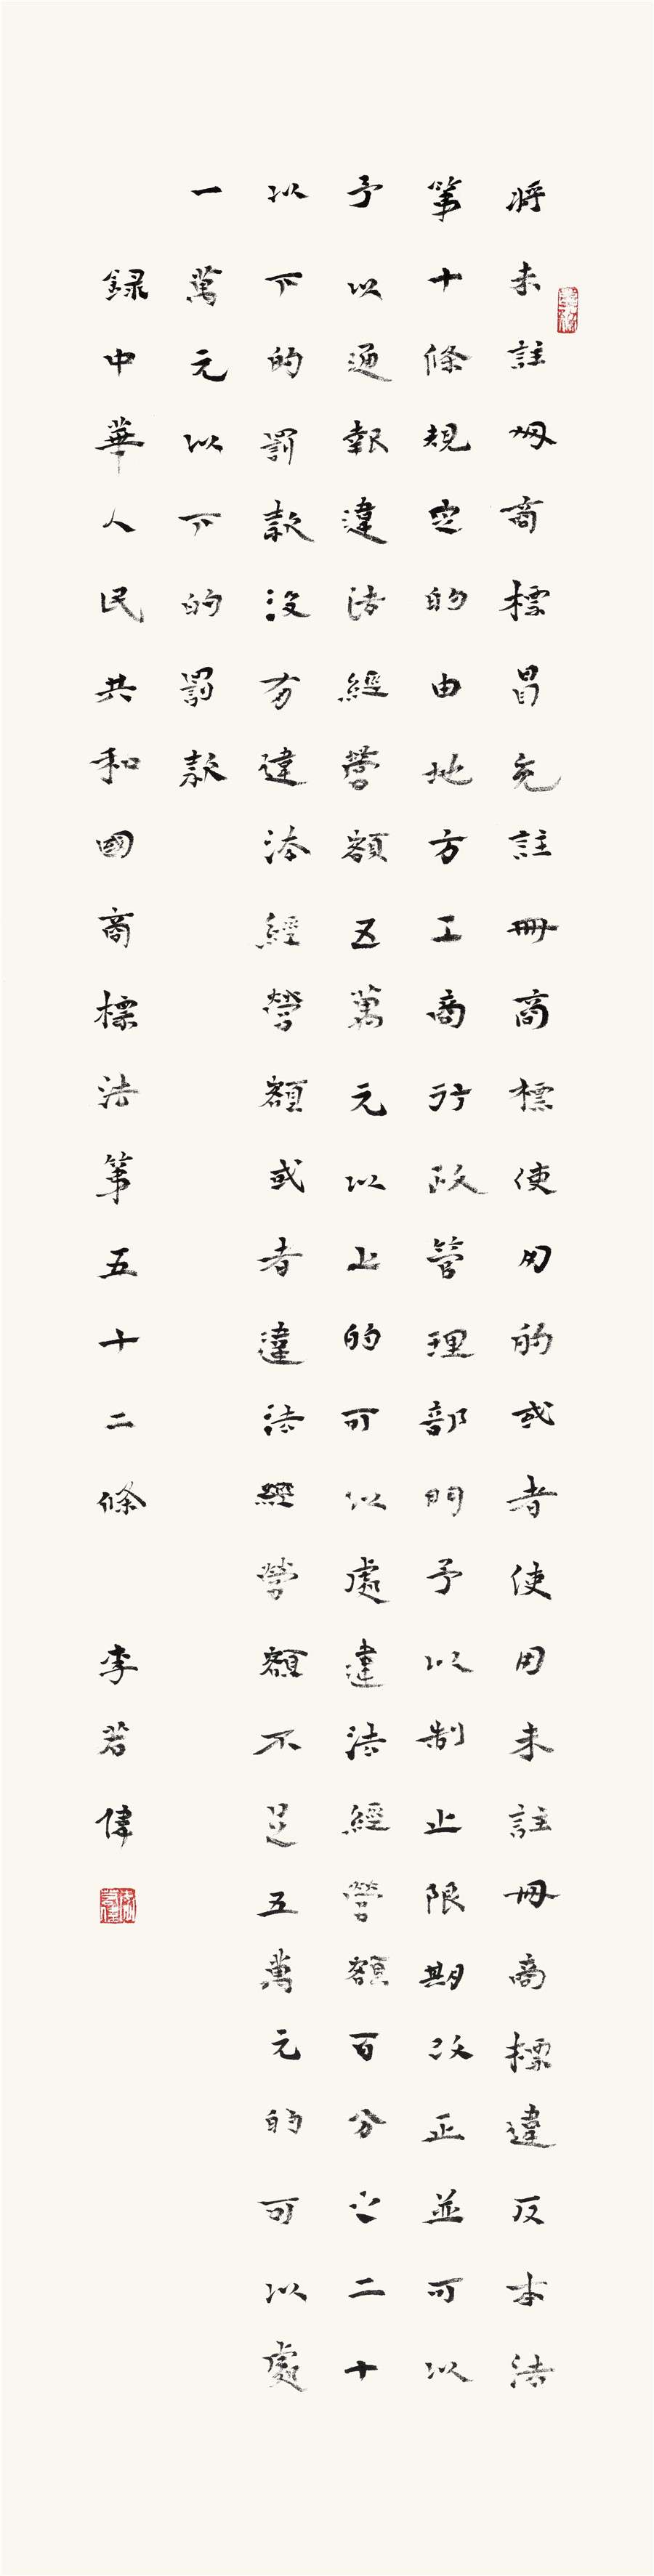 將未註册商標冒充註冊商標使用的或者使用未註冊商標違反本法
第十條規定的由地方工商行政管理部門予以制止限期改正並可以
予以通報違法經營額五萬元以上的可以處違法經營額百分之二十
以下的罰款没有違法經營額或者違法經營額不足五萬元的可以處
一萬元以下的罰款
録中華人民共和國商標法第五十二條 李若偉